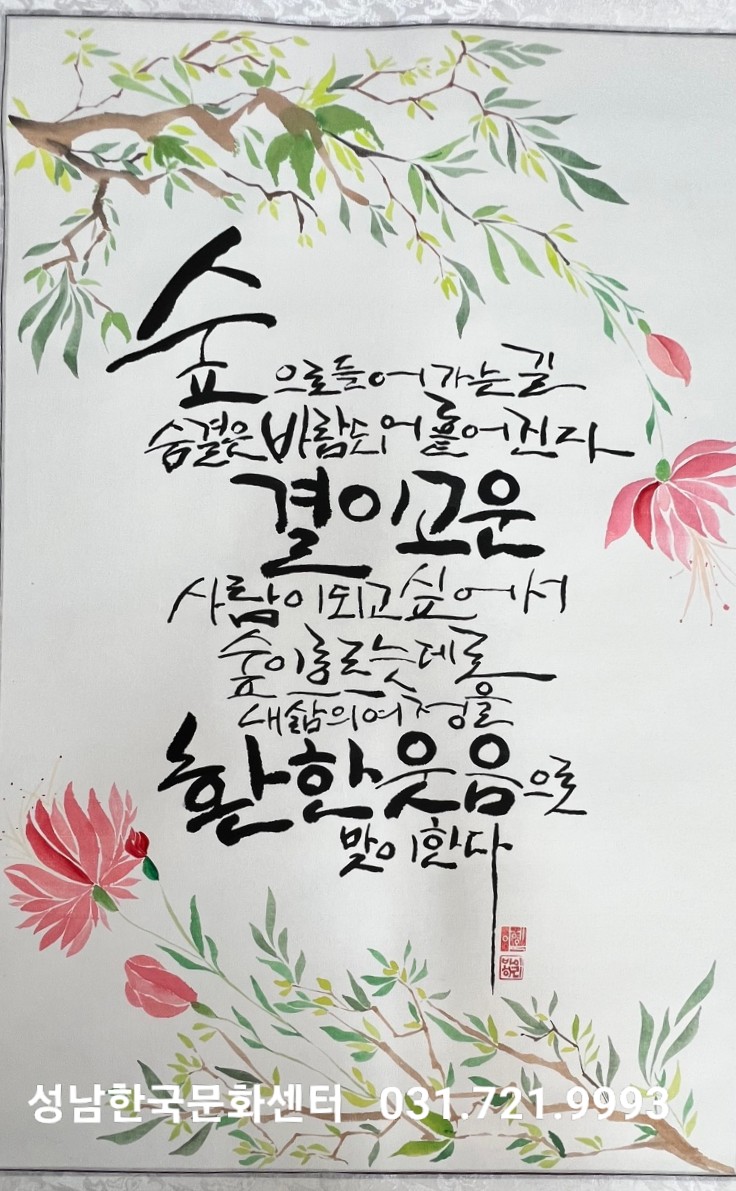 숲으로들어가는길
숨결은바람되어흩어진다
결이고운
사람이되고싶어서
숲이흐르는데로
내삶의여정을
환한웃음으로
맞이한다
성남한국문화센터 031.721.9993